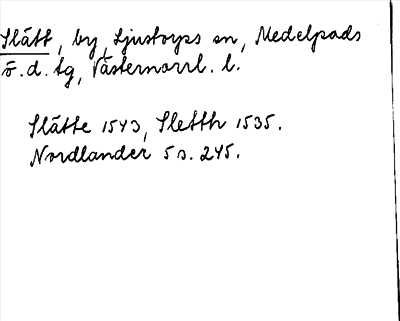 Slätt, by, Ljustorps sn, Medelpads
ö.d. tg, Västernorrl. l.
Slätte 1543, Sletth 1535.
Nordlander 5 s. 245.